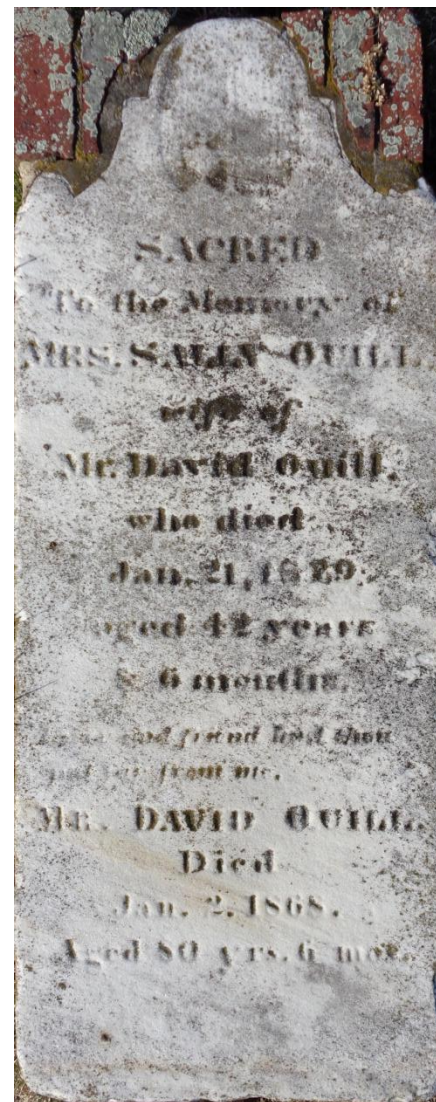 SACRED
To the Memory of
MRS. SALLY QUILL,
wife of
Mr. David Quill,
who died
Jan. 21, 1829,
aged 42 years
& 6 months.
and friend hast thou
put far from me.
MR. DAVID QUILL.
Died
Jan. 2, 1868.
Aged 80 yrs. 6 mos.